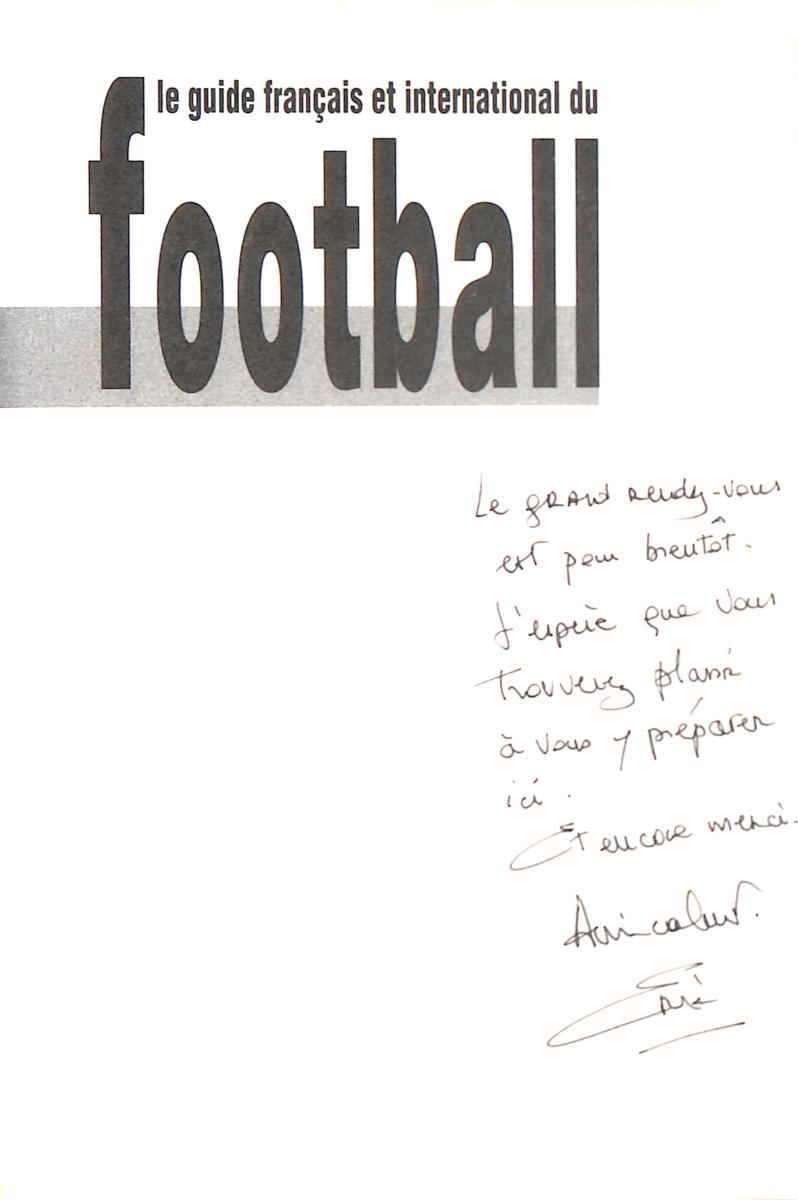 le guide français et international du
football
Le GRAND rendez-vous
est pour bientôt.
J'espère que vous
trouverez plaisir
à vous y préparer
ici.
Et encore merci.
Amicalement.
Eric